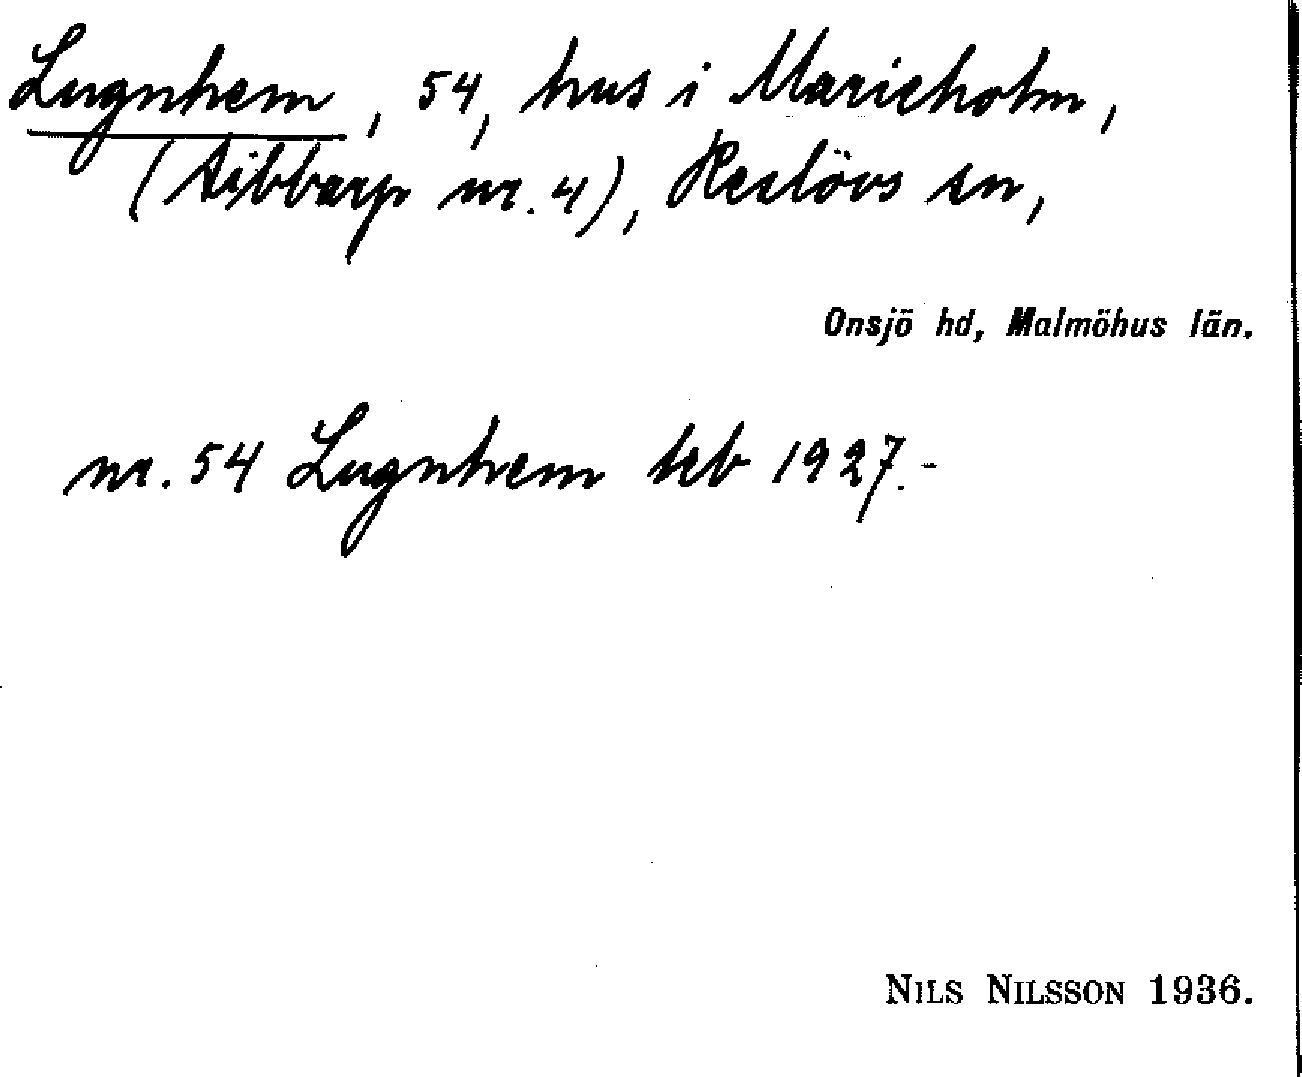 Lugnhem, 54, hus i Marieholm,
(Sibbarp nr. 4), Reslövs sn,
Onsjö hd, Malmöhus län.
nr. 54 Lugnhem beb 1927.-
NILS NILSSON 1936.